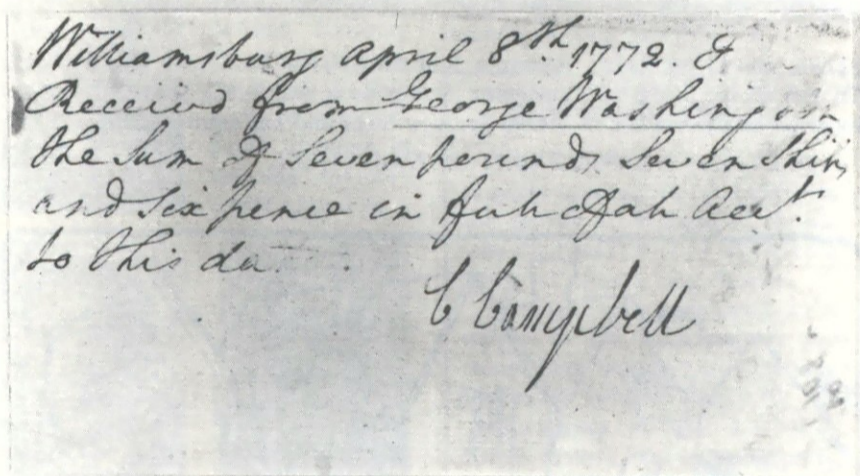 Williamsburg April 8th. 1772. I
Received from George Washington
the Sum of Seven pounds Seven Shils
and Sixpence in full of all Acct.
to this da
C Campbell